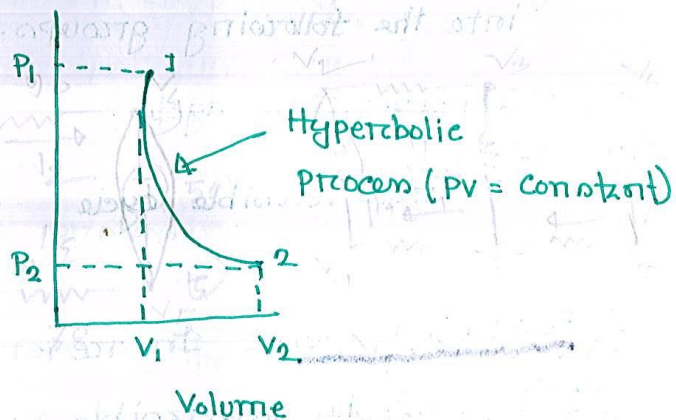 P₁
1
Hyperbolic
Process (PV = constant)
P₂
2
V₁
V₂
Volume